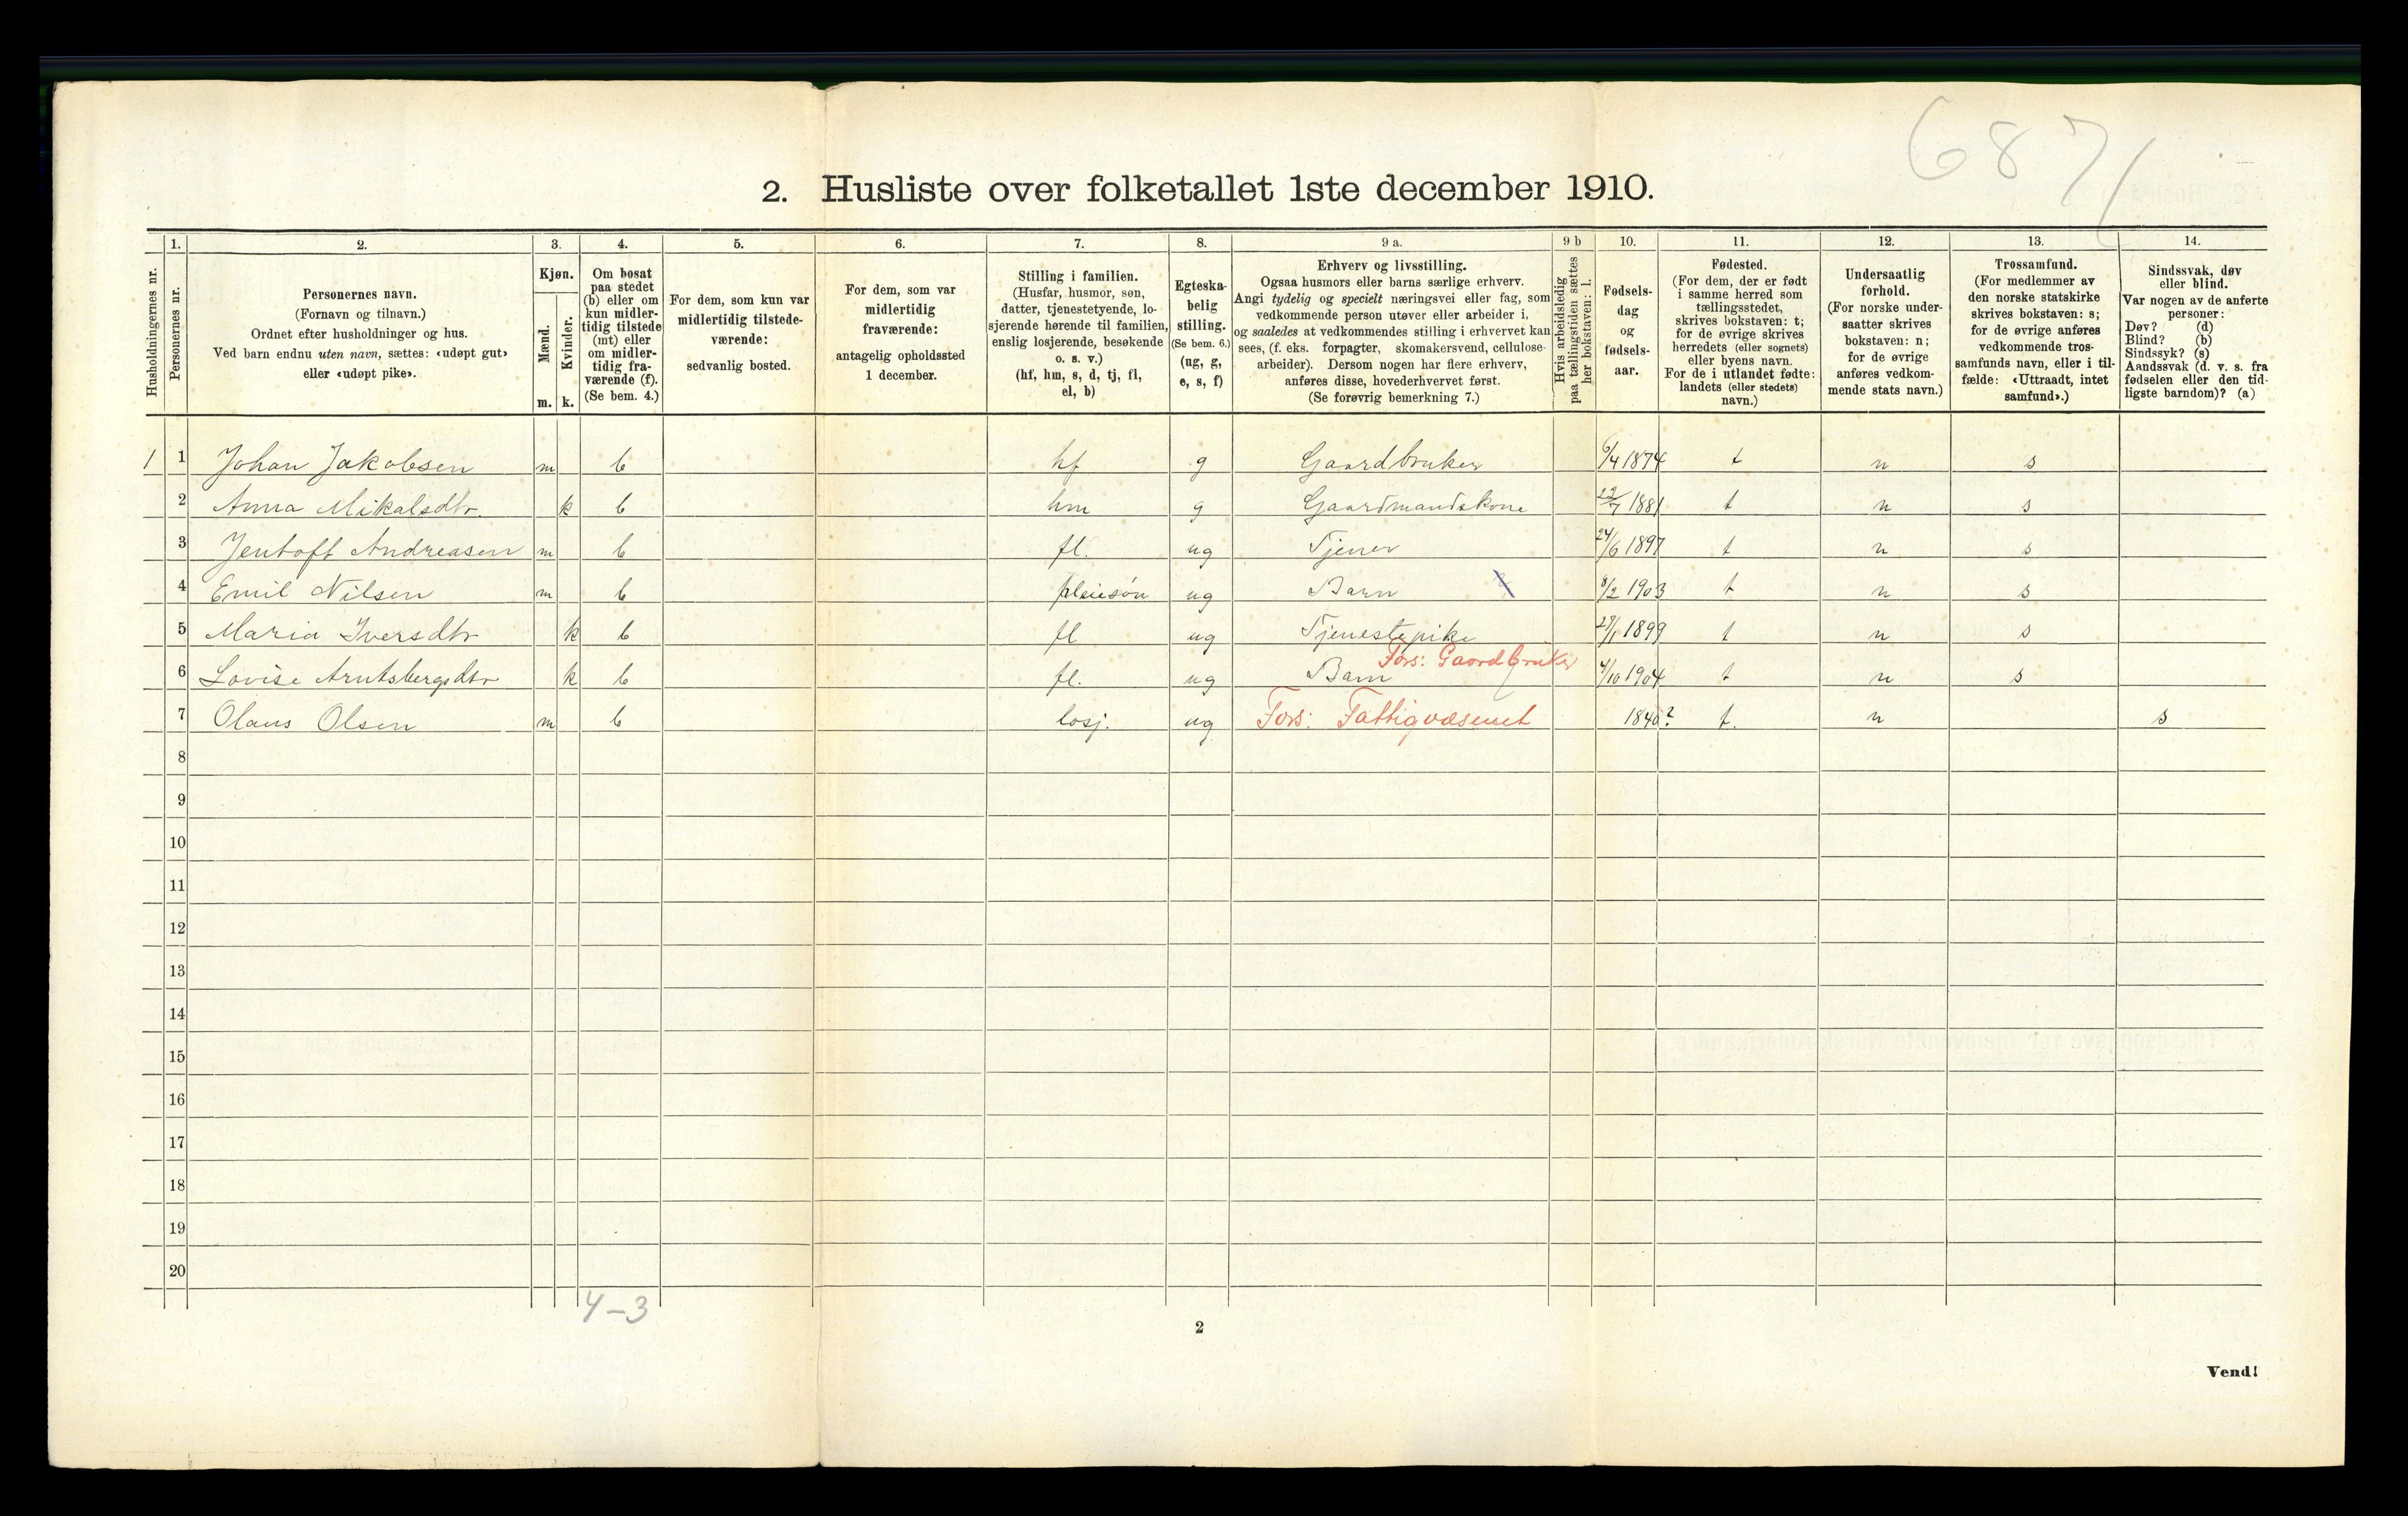 6871
2. Husliste over folketallet 1ste december 1910.
Husholdningernes nr.
1.
Personernes nr.
2.
Personernes navn.
(Fornavn og tilnavn.)
Ordnet efter husholdninger og hus.
Ved barn endnu uten navn, sættes: «udøpt gut»
eller «udøpt pike».
3.
Kjøn.
Mænd.
Kvinder.
m. k.
4.
Om bosat
paa stedet
(b) eller om
kun midler-
tidig tilstede
(mt) eller
om midler-
tidig fra-
værende (f).
(Se bem. 4.)
5.
For dem, som kun var
midlertidig tilstede-
værende:
sedvanlig bosted.
6.
For dem, som var
midlertidig
fraværende:
antagelig opholdssted
1 december.
7.
Stilling i familien.
(Husfar, husmor, søn,
datter, tjenestetyende, lo-
sjerende hørende til familien,
enslig losjerende, besøkende
o. s. v.)
(hf, hm, s, d, tj, fl,
el, b)
8.
Egteska-
belig
stilling.
(Se bem. 6.)
(ug, g,
e, s, f)
9 a.
Erhverv og livsstilling.
Ogsaa husmors eller barns særlige erhverv.
Angi tydelig og specielt næringsvei eller fag, som
vedkommende person utøver eller arbeider i,
og saaledes at vedkommendes stilling i erhvervet kan
sees, (f. eks. forpagter, skomakersvend, cellulose-
arbeider). Dersom nogen har flere erhverv,
anføres disse, hovederhvervet først.
(Se forøvrig bemerkning 7.)
9 b
Hvis arbeidsledig
paa tællingstiden sættes
her bokstaven: l.
10.
Fødsels-
dag
og
fødsels-
aar.
11.
Fødested.
(For dem, der er født
i samme herred som
tællingsstedet,
skrives bokstaven: t;
for de øvrige skrives
herredets (eller sognets)
eller byens navn.
For de i utlandet fødte:
landets (eller stedets)
navn.)
12.
Undersaatlig
forhold.
(For norske under-
saatter skrives
bokstaven: n;
for de øvrige
anføres vedkom-
mende stats navn.)
13.
Trossamfund.
(For medlemmer av
den norske statskirke
skrives bokstaven: s;
for de øvrige anføres
vedkommende tros-
samfunds navn, eller i til-
fælde: «Uttraadt, intet
samfund».)
14.
Sindssvak, døv
eller blind.
Var nogen av de anførte
personer:
Døv? (d)
Blind? (b)
Sindssyk? (s)
Aandssvak (d. v. s. fra
fødselen eller den tid-
ligste barndom)? (a)
1 1 Johan Jakobsen m b hf g Gaardbruker 6/4 1874 t n s
2 Anna Mikalsdtr. k b hm g Gaardmandskone 22/7 1881 t n s
3 Jentoft Andreasen m b fl. ug Tjener 24/6 1897 t n s
4 Emil Nilsen m b pleiesøn ug Barn 8/2 1903 t n s
5 Maria Iversdtr k b fl ug Tjenestepike 27/1 1899 t n s
Fors: Gaardbruker
6 Lovise Arntsbergsdtr k b fl. ug Barn 4/10 1904 t n s
7 Olaus Olsen m b losj. ug Fors: Fattigvæsenet 1840? t. n s
8
9
10
11
12
13
14
15
16
17
18
19
20
4-3
2
Vend!